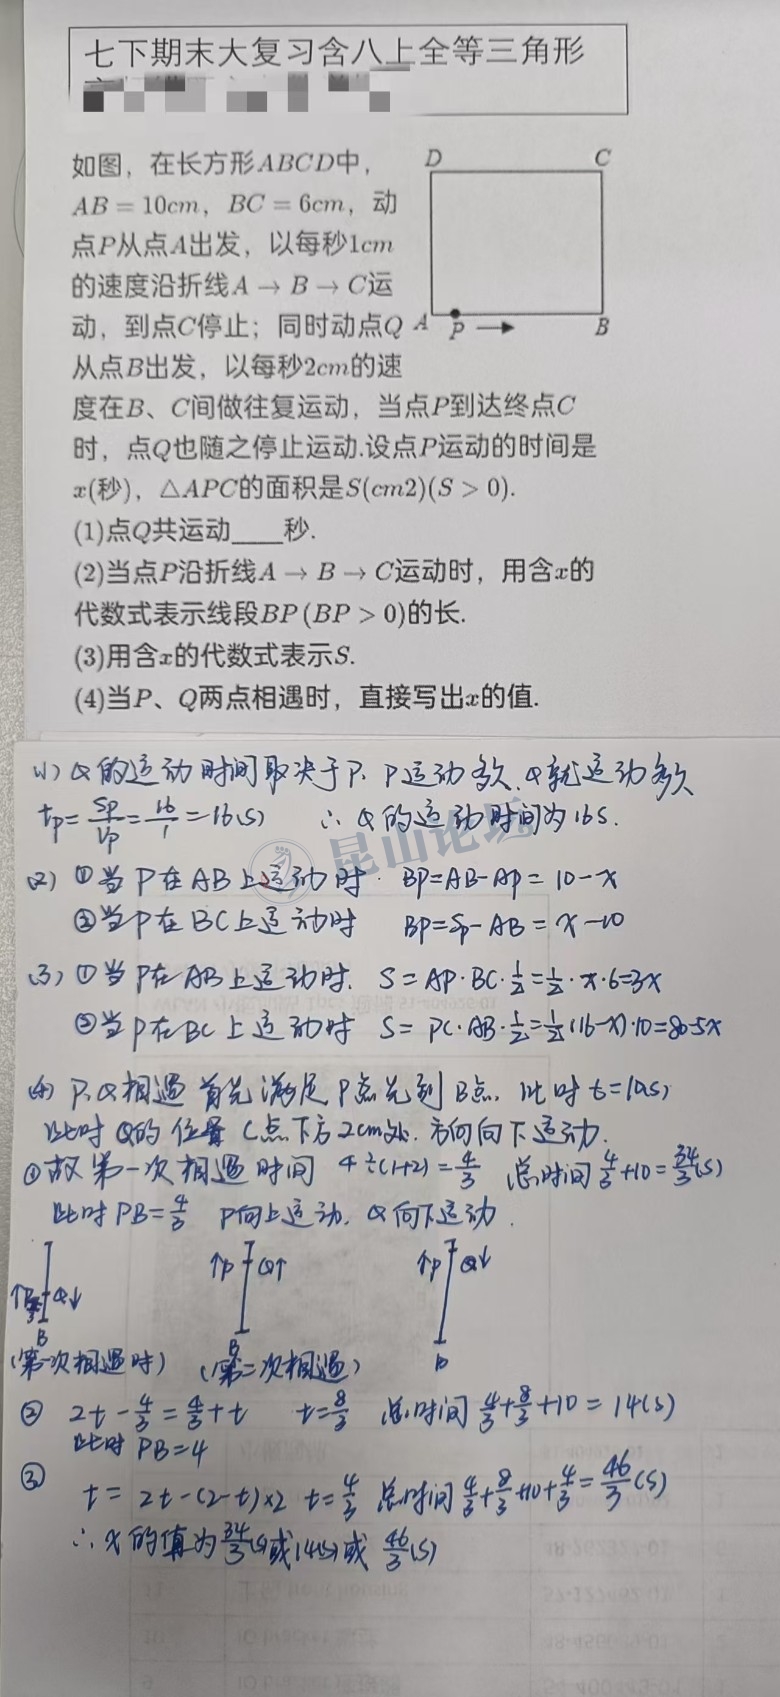 七下期末大复习含八上全等三角形
如图，在长方形ABCD中，
AB = 10cm，BC = 6cm，动
点P从点A出发，以每秒1cm
的速度沿折线A → B → C运
动，到点C停止；同时动点Q
从点B出发，以每秒2cm的速
度在B、C间做往复运动，当点P到达终点C
时，点Q也随之停止运动.设点P运动的时间是
x(秒)，△APC的面积是S(cm2)(S > 0).
(1)点Q共运动____秒.
(2)当点P沿折线A → B → C运动时，用含x的
代数式表示线段BP(BP > 0)的长.
(3)用含x的代数式表示S.
(4)当P、Q两点相遇时，直接写出x的值.
D C
A P → B
(1) Q的运动时间取决于P. P运动多久.Q就运动多久
tp = Sp/Vp = 16/1 = 16(s) ∴ Q的运动时间为16s.
昆山论坛
(2) ①当P在AB上运动时. BP=AB-AP = 10-x
②当P在BC上运动时 BP=Sp-AB = x-10
(3) ①当P在AB上运动时. S = AP·BC·1/2 = 1/2·x·6=3x
②当P在BC上运动时 S = PC·AB·1/2 = 1/2(16-x)·10=80-5x
(4) P.Q相遇 首先满足P点先到B点. 此时 t=10(s)
此时 Q的位置 C点下方2cm处. 方向向下运动.
①故第一次相遇时间 4÷(1+2) = 4/3 总时间 4/3+10 = 34/3(s)
此时PB=4/3 P向上运动. Q向下运动.
↑P Q↓ ↑P Q↑ ↑P Q↓
B B B
(第一次相遇时) (第二次相遇)
② 2t-4/3 = 4/3+t t=8/3 总时间 4/3+8/3+10 = 14(s)
此时 PB=4
③ t = 2t-(2-t)×2 t=4/3 总时间 4/3+8/3+10+4/3 = 46/3(s)
∴ x的值为34/3(s)或14(s)或 46/3(s)